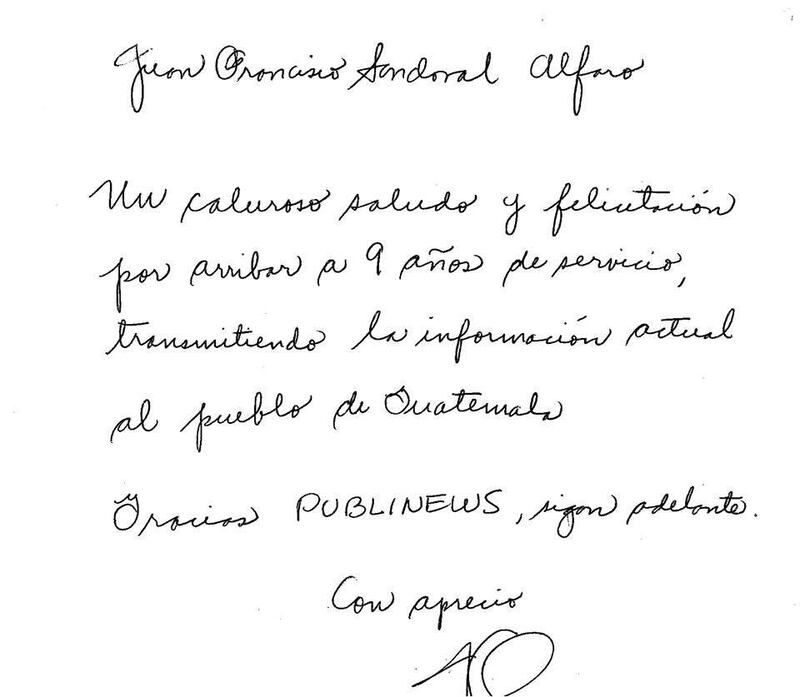 Juan Francisco Sandoval Alfaro
Un caluroso saludo y felicitación
por arribar a 9 años de servicio,
transmitiendo la información actual
al pueblo de Guatemala
Gracias PUBLINEWS, sigan adelante.
Con aprecio